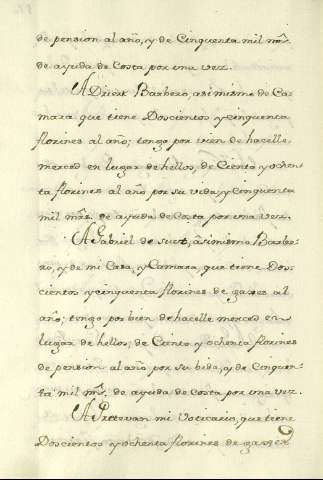 de pension al año, y de Cinquenta mil mrs.
de ayuda de Costa por una vez.
A Dirck Barbero, asimismo de Ca-
mara que tiene Doscientos y cinquenta
florines al año; tengo por vien de hacelle
merced en lugar de hellos, de Ciento y ochen-
ta florines al año por su vida y Cinquenta
mil mrs. de ayuda de Costa por una vez.
A Gabriel de suert, asimismo Barbe-
ro, y de mi Casa, y Camara, que tiene Dos-
cientos y cinquenta florines de gages al
año; tengo por bien de hacelle merced en
lugar de hellos; de Ciento y ochenta florines
de pension al año por su bida, y de Cinquen-
ta mil mrs. de ayuda de Costa por una vez.
A mi Voticario, que tiene
Doscientos y ochenta florines de gages